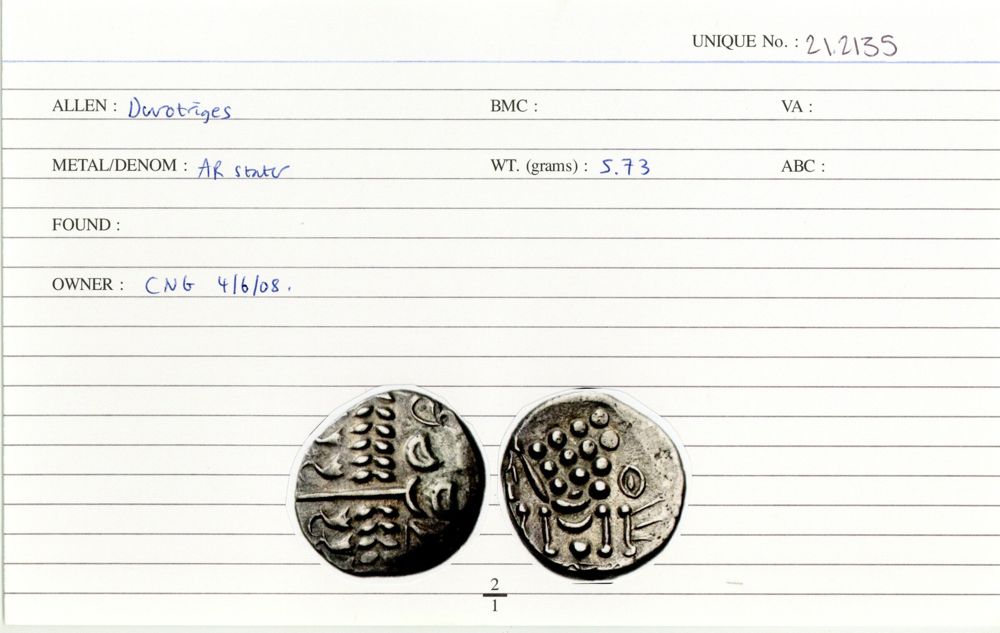 UNIQUE No. : 21.2135
ALLEN : Durotriges BMC : VA :
METAL/DENOM : AR stater WT. (grams) : 5.73 ABC :
FOUND :
OWNER : CNG 4/6/08.
2
1